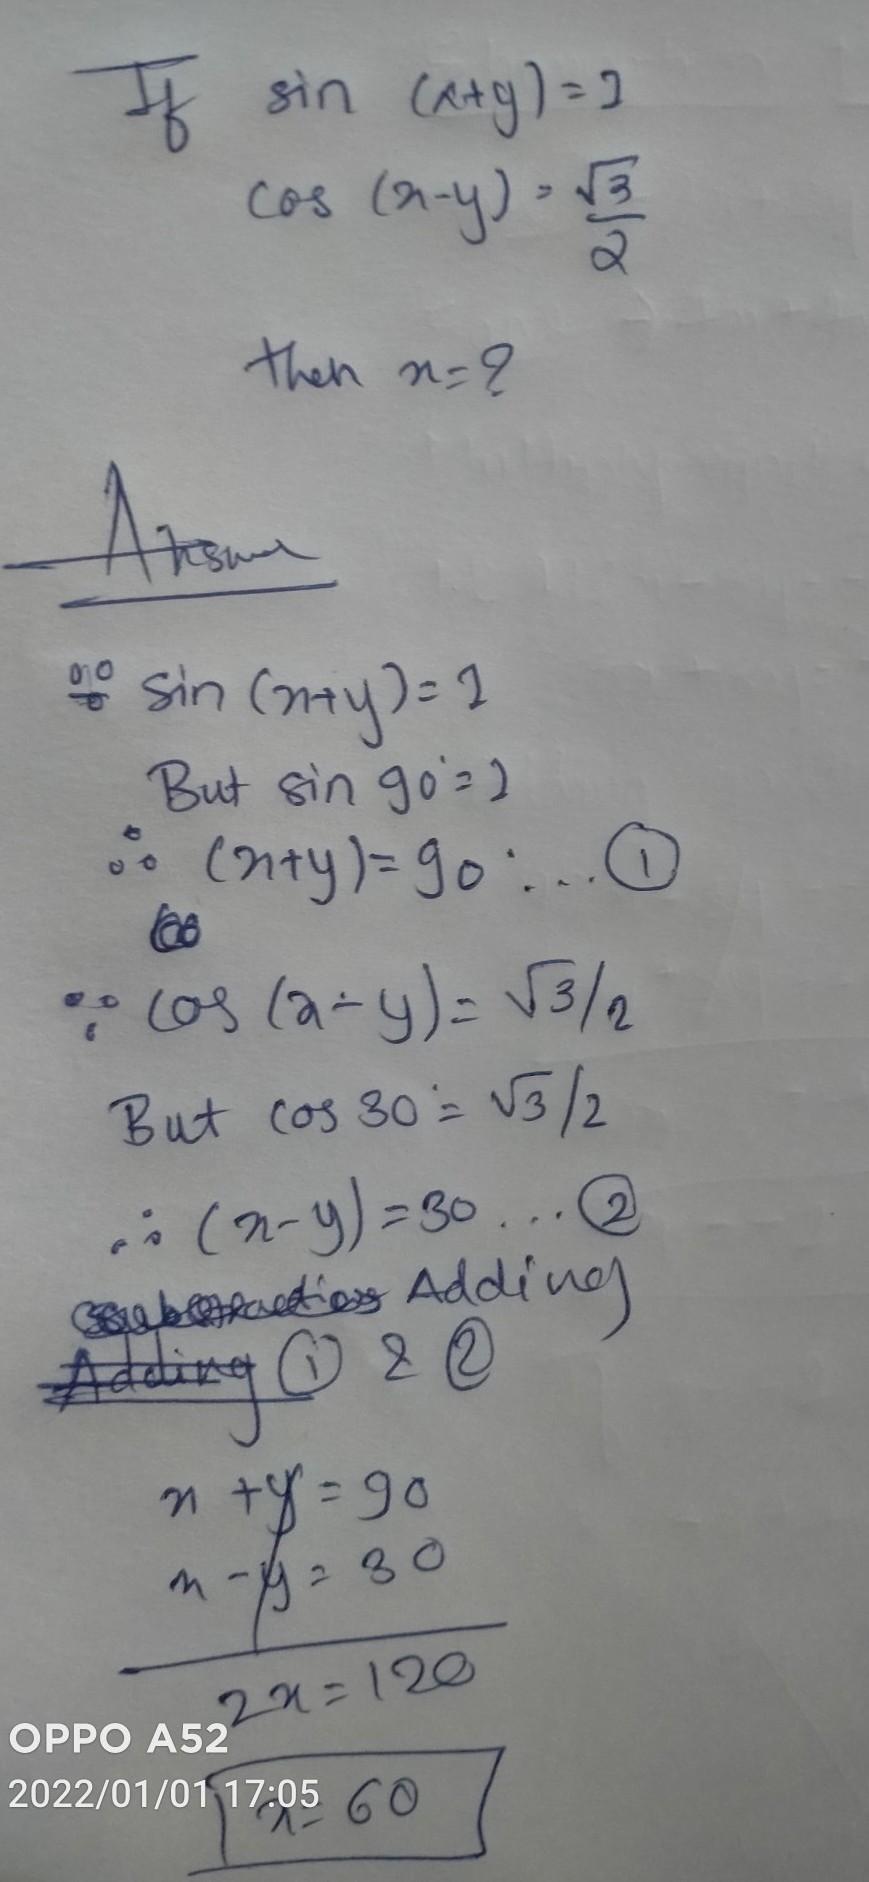 If sin (x+y)=1
cos (x-y) = √3/2
then x=?
Answer
∵ sin (x+y)=1
But sin 90°=1
∴ (x+y)=90°... ①
∵ cos (x-y)= √3/2
But cos 30°= √3/2
∴ (x-y)=30 ... ②
Adding
Adding ① & ②
x +y = 90
x -y = 30
2x = 120
OPPO A52
2022/01/01 17:05
x= 60